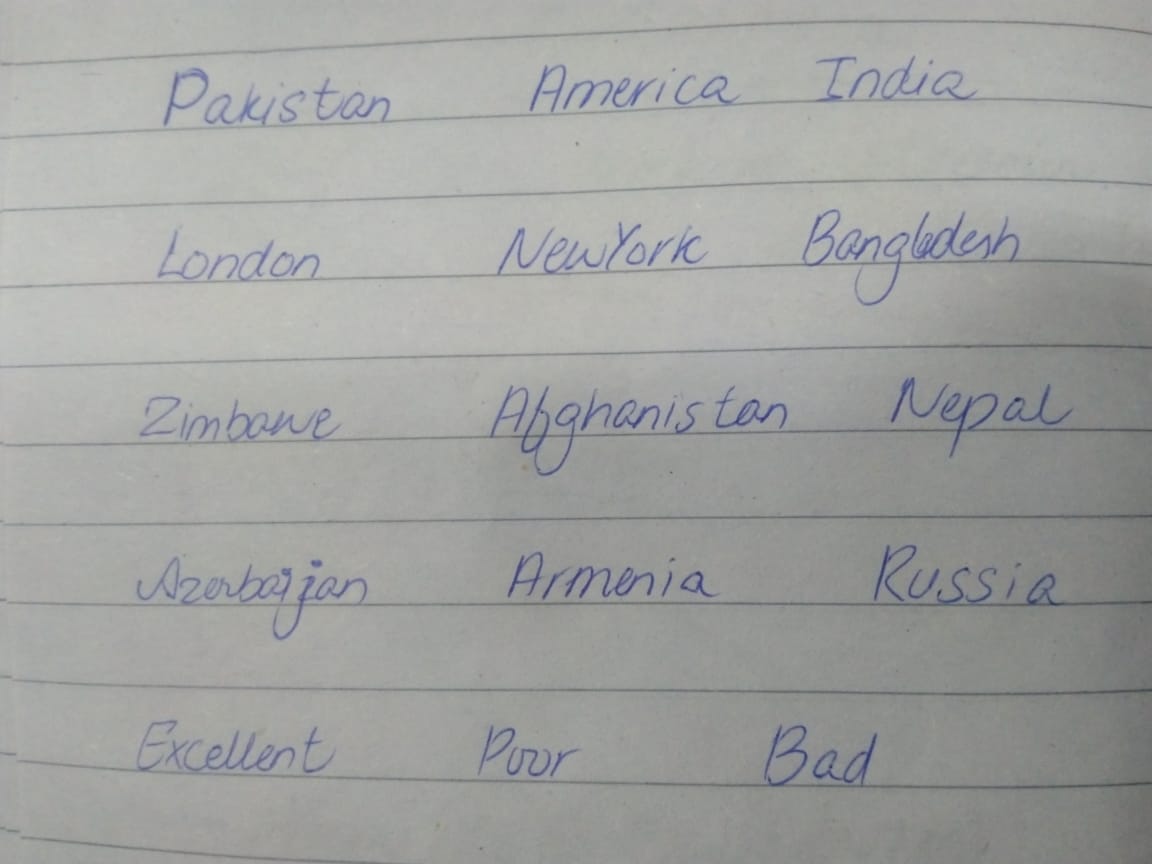 Pakistan America India
London NewYork Bangladesh
Zimbawe Afghanistan Nepal
Azerbaijan Armenia Russia
Excellent Poor Bad